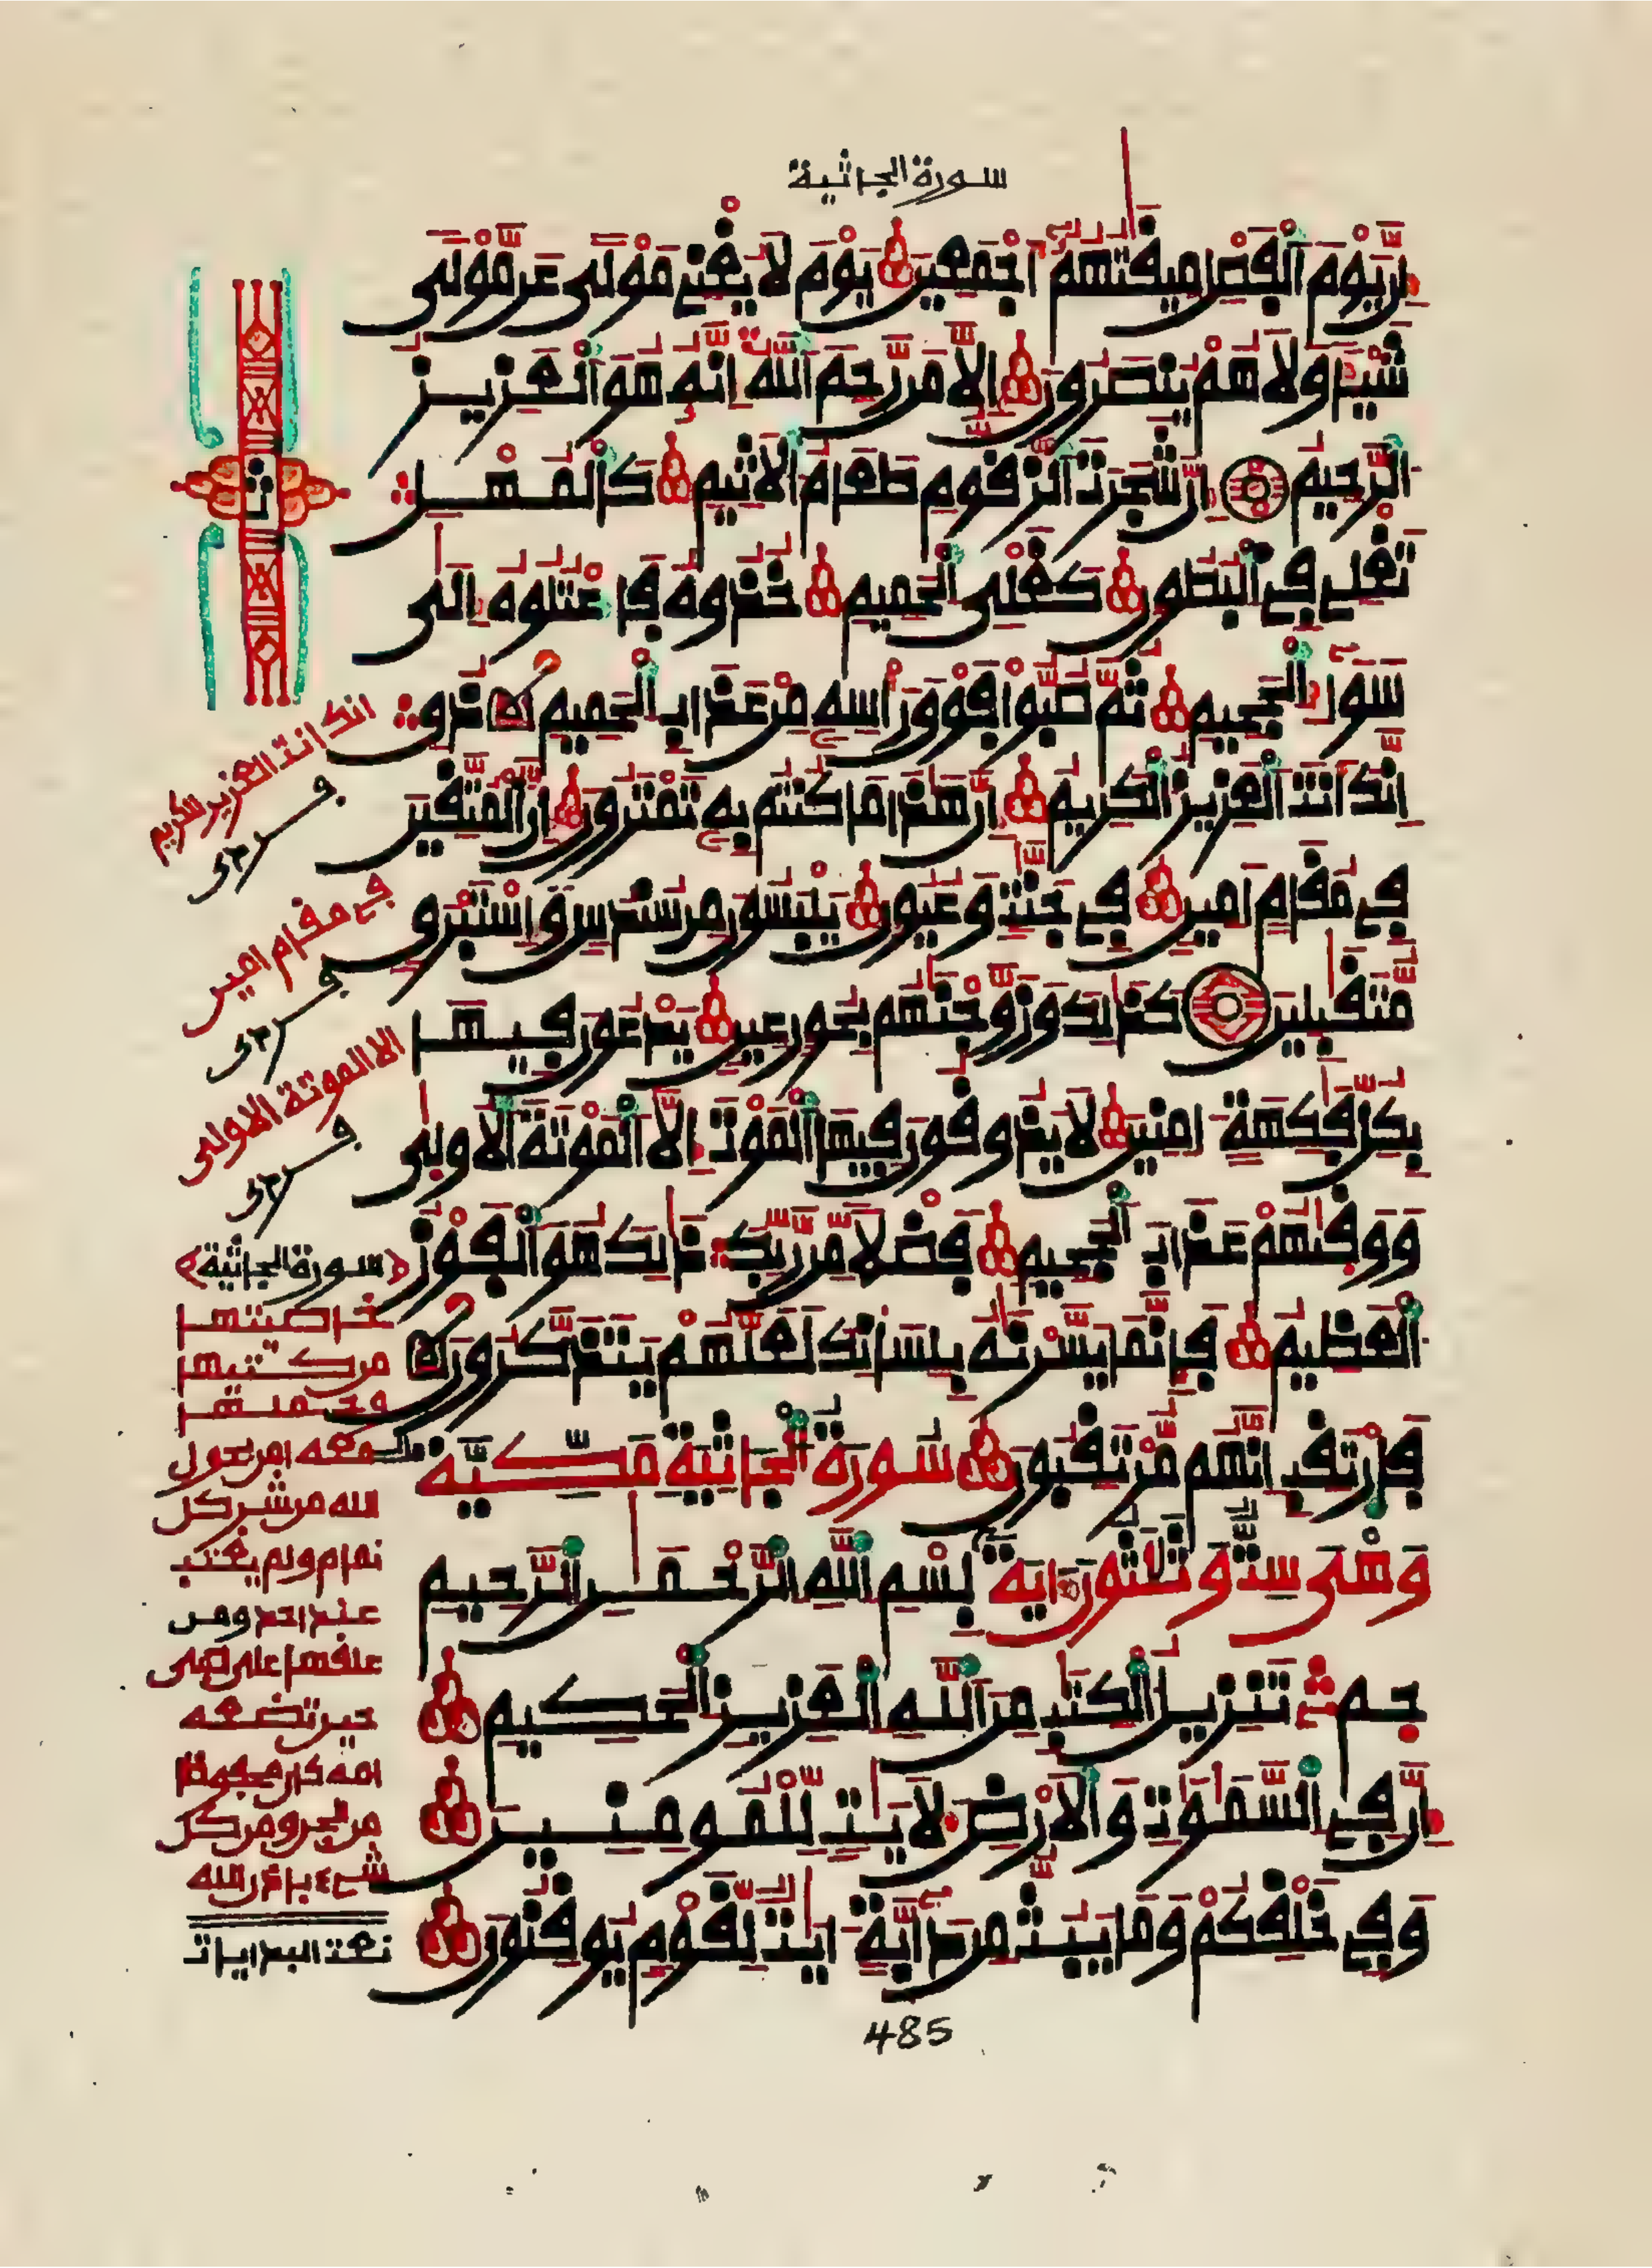 سورة الجاثية
إن يوم الفصل ميقتهم أجمعين يوم لا يغني مولى عن مولى
شيئا ولا هم ينصرون إلا من رحم الله إنه هو العزيز
الرحيم إن شجرت الزقوم طعام الأثيم كالمهل
تغلي في البطون كغلي الحميم خذوه فاعتلوه إلى
سواء الجحيم ثم صبوا فوق رأسه من عذاب الحميم ذق
إنك أنت العزيز الكريم إن هذا ما كنتم به تمترون إن المتقين
في مقام أمين في جنت وعيون يلبسون من سندس وإستبرق
متقبلين كذلك وزوجنهم بحور عين يدعون فيها
بكل فكهة امنين لا يذوقون فيها الموت إلا الموتة الأولى
ووقيهم عذاب الجحيم فضلا من ربك ذلك هو الفوز
العظيم فإنما يسرنه بلسانك لعلهم يتذكرون
فارتقب إنهم مرتقبون سورة الجاثية مكية
وهي ست وثلثون اية بسم الله الرحمن الرحيم
حم تنزيل الكتب من الله العزيز الحكيم
إن في السموت والأرض لأيت للمومنين
وفي خلقكم وما يبث من دابة ايت لقوم يوقنون
485
ث
انك انت العزيز الكريم
في مقام امين
الا الموتة الاولى
سورة الجاثية
خاصيتها
من كتبها
وحملها
معه امن بحول
الله من شر كل
نمام ولم يغتب
عند احد ومن
علقها على صبي
حين تضعه
امه كان محفوظا
من الجن ومن كل
شيء باذن الله
نعت البدايات